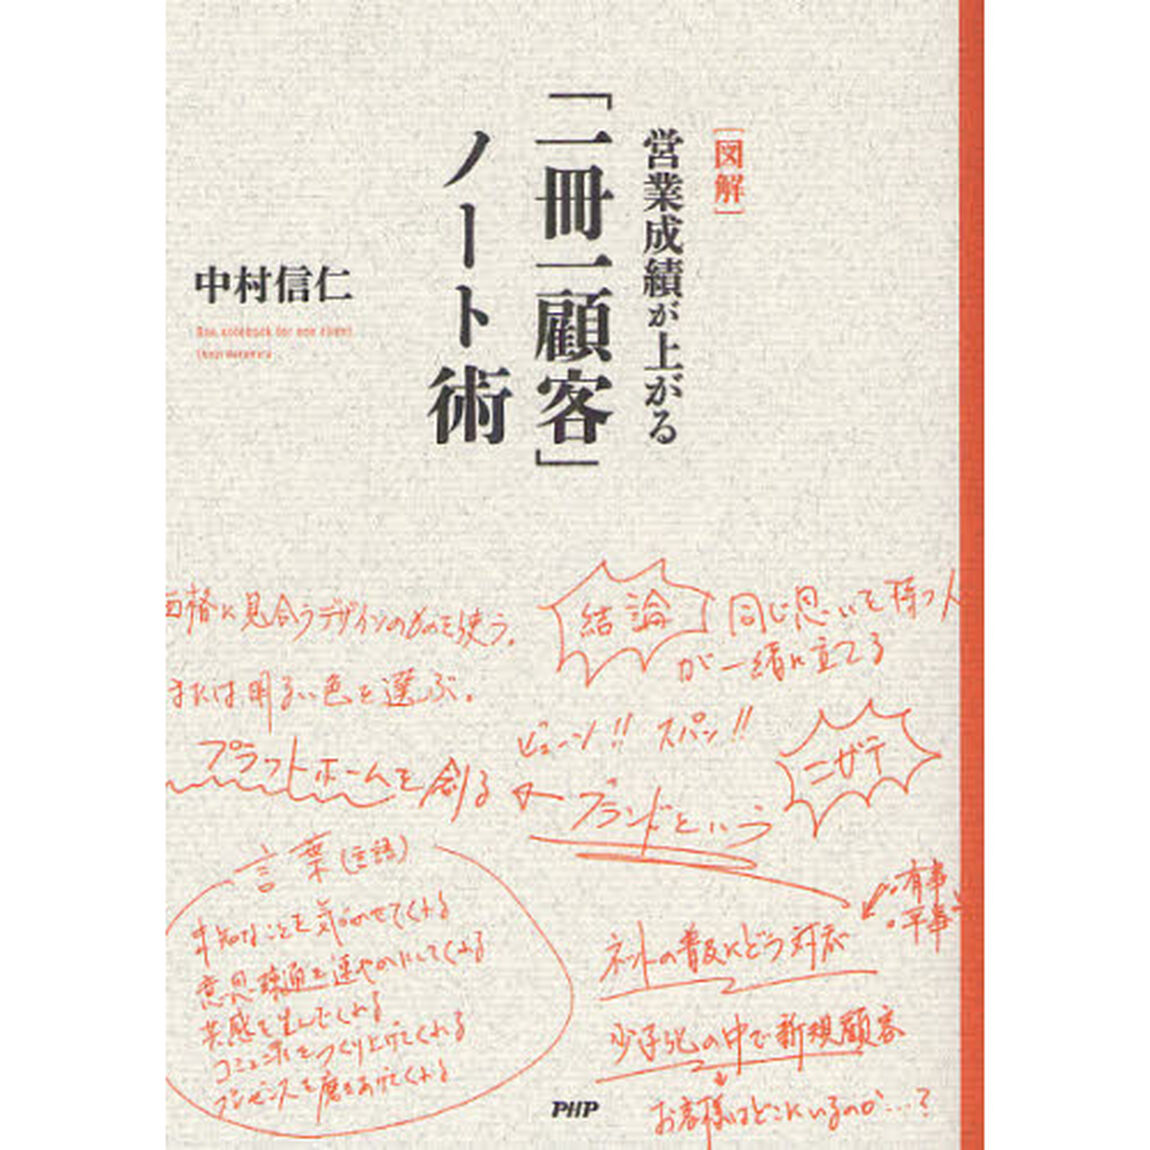 ［図解］
営業成績が上がる
「一冊一顧客」
ノート術
中村信仁
One notebook for one client
Shinji Nakamura
価格に見合うデザインのものを使う。
または明るい色を選ぶ。
プラットホームを創る
結論
同じ思いを持つ人
が一緒に立てる
ビューン!! スパン!!
ニザテ
ブランドという
言葉(言語)
未知なことを気づかせてくれる
意思疎通を速やかにしてくれる
共感を生んでくれる
コミュニティをつくり上げてくれる
プレゼンスを磨きあげてくれる
有事
平事
ネットの普及にどう対応
少子化の中で新規顧客
お客様はどこにいるのか…?
PHP